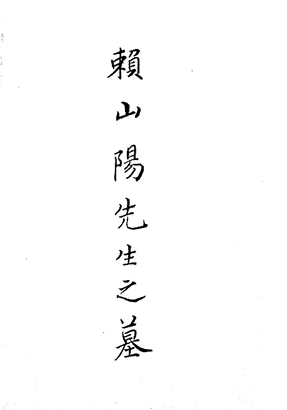 賴山陽先生之墓